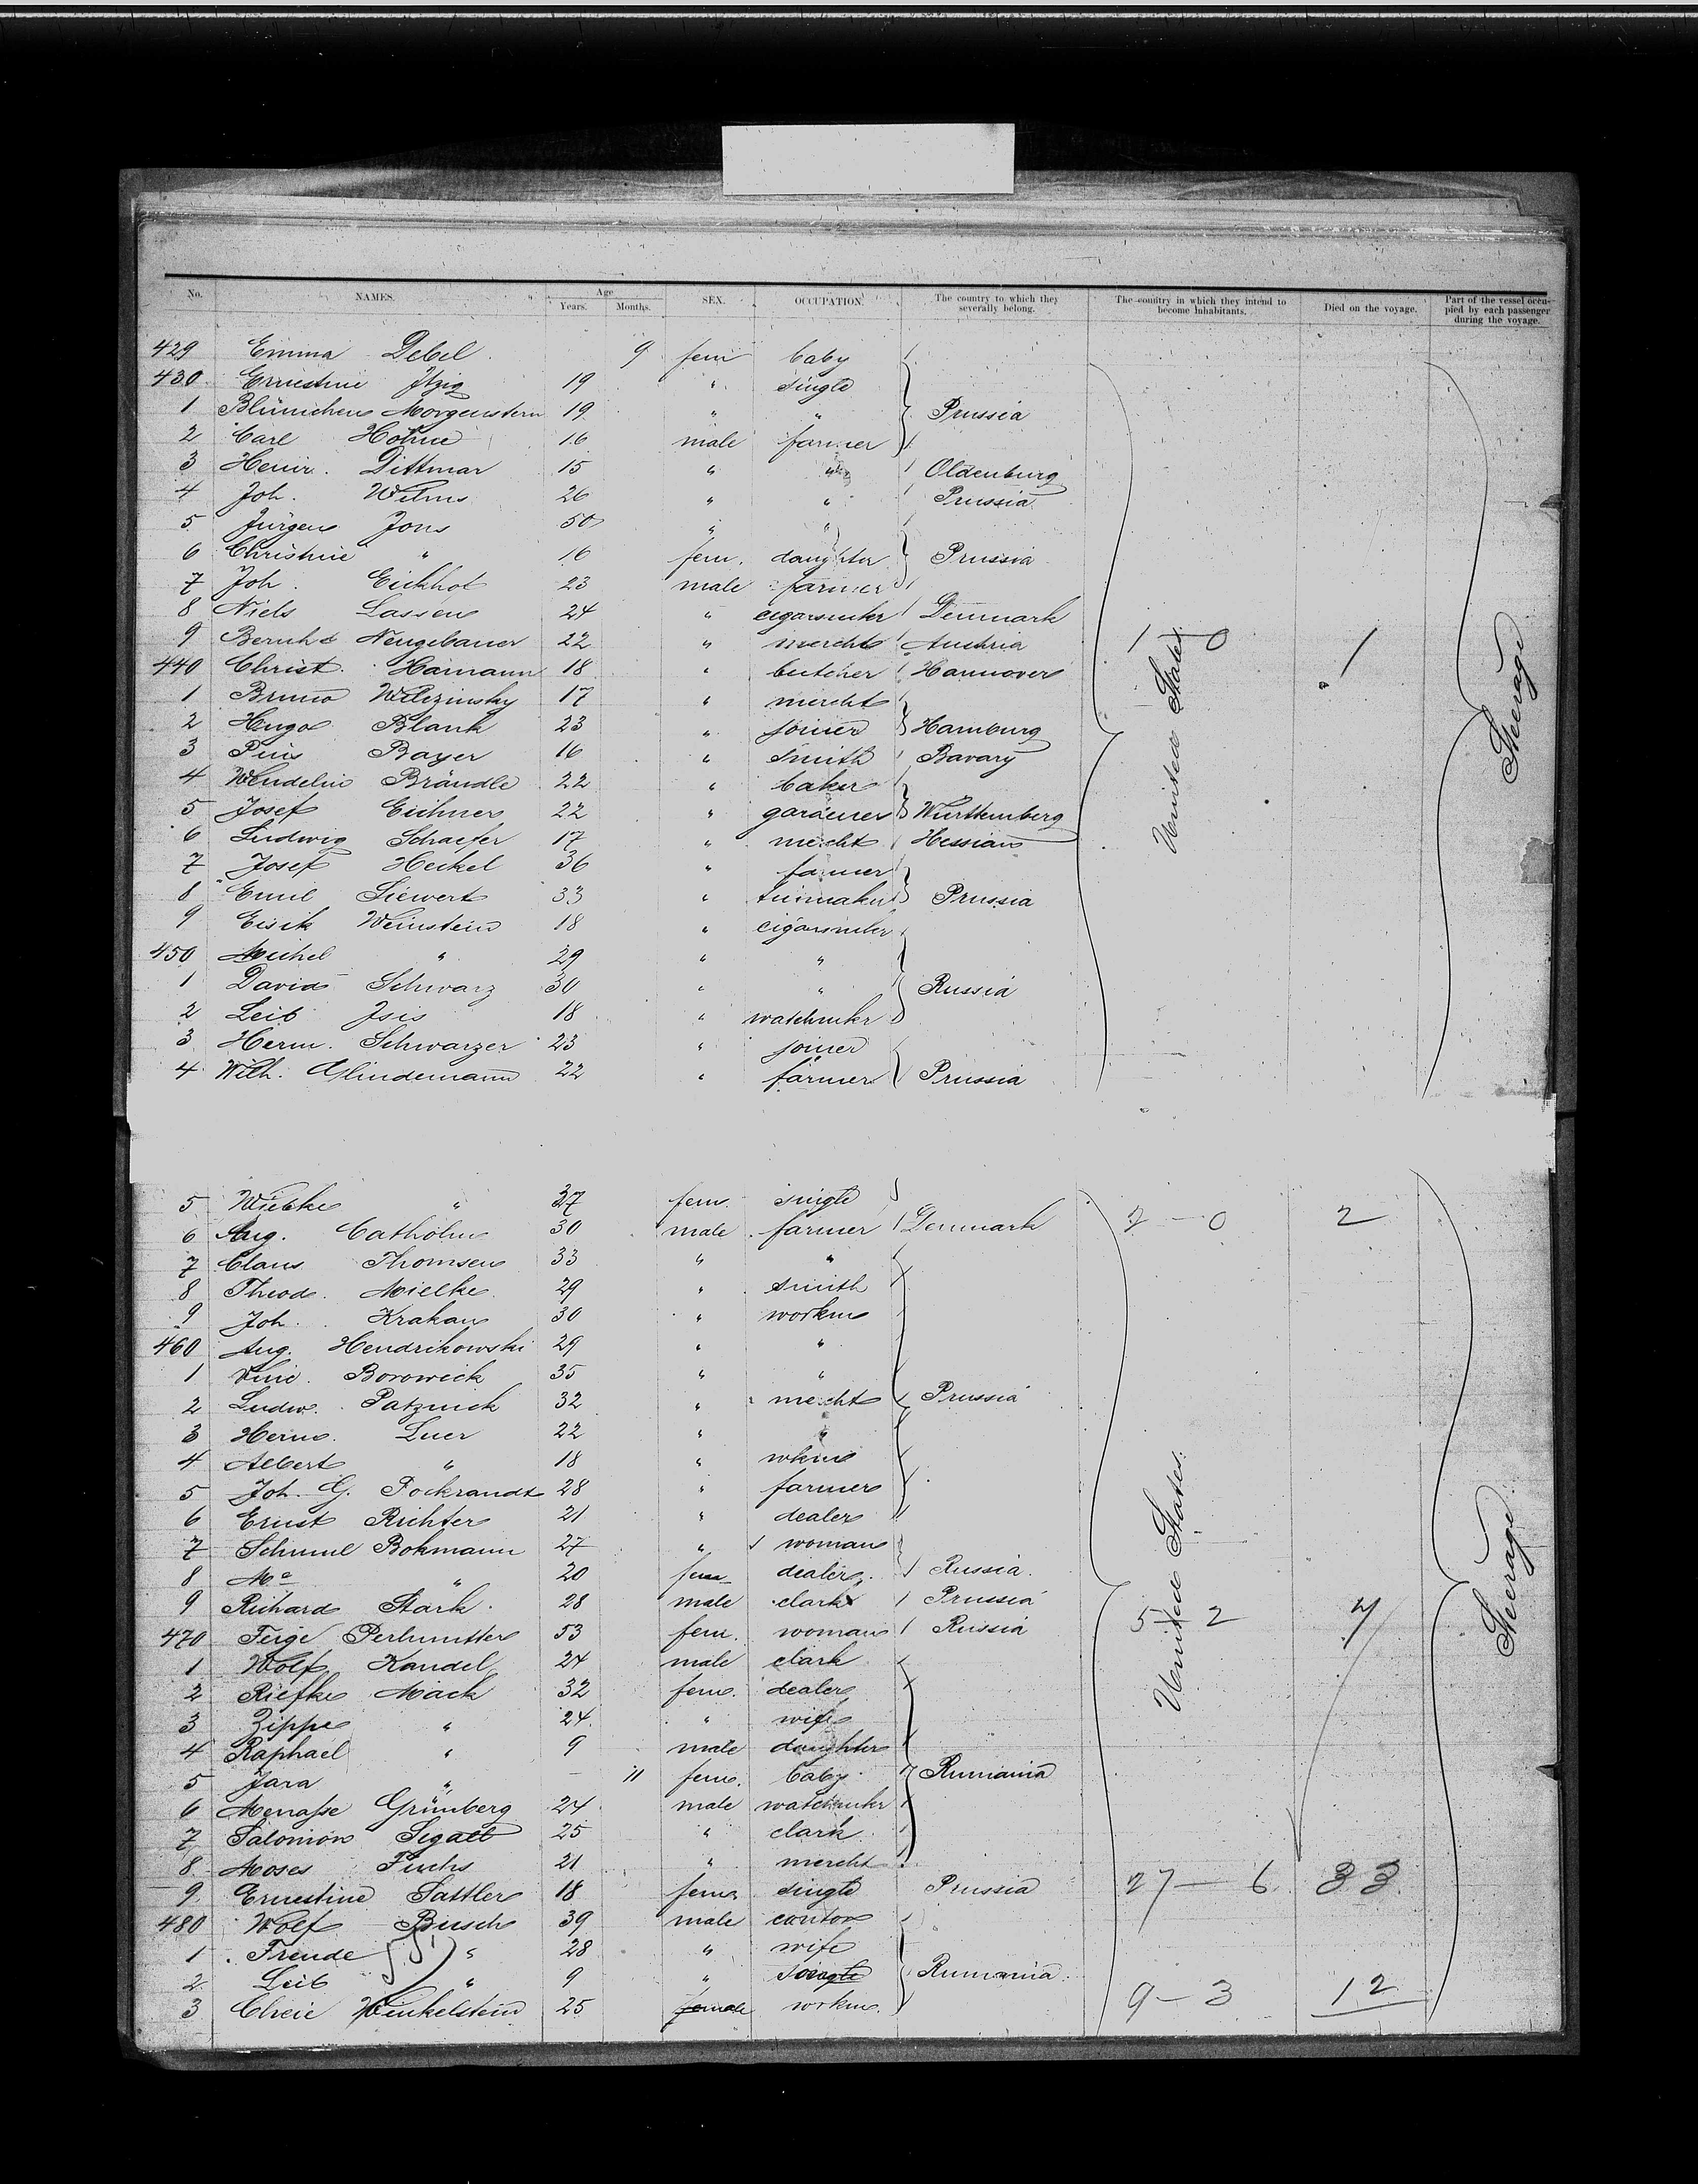 No. NAMES. Age Years. Months. SEX. OCCUPATION. The country to which they severally belong. The country in which they intend to become Inhabitants. Died on the voyage. Part of the vessel occupied by each passenger during the voyage.
429 Emma Debel 9 fem baby
430 Ernestine Itzig 19 " single
1 Blümchen Morgenstern 19 " " Prussia
2 Carl Höhne 16 male farmer
3 Heinr. Dittmar 15 " " Oldenburg
4 Joh. Wilms 26 " " Prussia
5 Jürgen Jons 50 " "
6 Christine " 16 fem. daughter Prussia
7 Joh. Eickhof 23 male farmer
8 Niels Lassen 24 " cigarmkr Denmark
9 Bernhd Neugebauer 22 " mercht Austria 1 - 0 1
440 Christ. Hamann 18 " butcher Hannover
1 Bruno 17 " mercht
2 Hugo Blank 23 " joiner Hamburg
3 Pius Bayer 16 " smith Bavary
4 Wendelin Brändle 22 " baker
5 Josef Eichner 22 " gardener Württemberg
6 Ludwig Schaefer 17 " mercht Hessian
7 Josef Heckel 36 " farmer
8 Emil Siewert 33 " Prussia
9 Eisik Weinstein 18 " cigarmker
450 Michel " 29 " "
1 David Schwarz 30 " " Russia
2 Leib 18 " watchmkr
3 Herm. Schwarzer 23 " joiner
4 Wilh. Glindemann 22 " farmer Prussia
United States.
Steerage
5 Wiebke " 37 fem. single
6 Aug. Catholm 30 male farmer Denmark 2 - 0 2
7 Claus Thomsen 33 " "
8 Theod. Mielke 29 " smith
9 Joh. Krakau 30 " workm
460 Aug. Hendrikowski 29 " "
1 Borowick 35 " "
2 Ludw. Patzuck 32 " mercht Prussia
3 Herm. Luer 22 " "
4 Albert " 18 " wkm
5 Joh. G. Fockrandt 28 " farmer
6 Ernst Richter 21 " dealer
7 Schmul Bokmann 27 " woman
8 " 20 fem dealer Russia.
9 Richard Stark 28 male clark Prussia 5 - 2 7
470 Feige Perlmutter 53 fem. woman Russia
1 Wolf Kandel 24 male clark
2 Riefke Mack 32 fem. dealer
3 Zippe " 24 " wife
4 Raphael " 9 male daughter
5 Jara " 11 fem. baby Rumania
6 Menasse Grünberg 24 male watchmkr
7 Salomon Segall 25 " clark
8 Moses Fuchs 21 " mercht
9 Ernestine Sattler 18 fem single Prussia 27 - 6 33
480 Wolf Busch 39 male
1 Freude " 28 " wife
2 Leib " 9 " single Rumania
3 Winkelstein 25 female workm. 9 - 3 12
United States.
Steerage